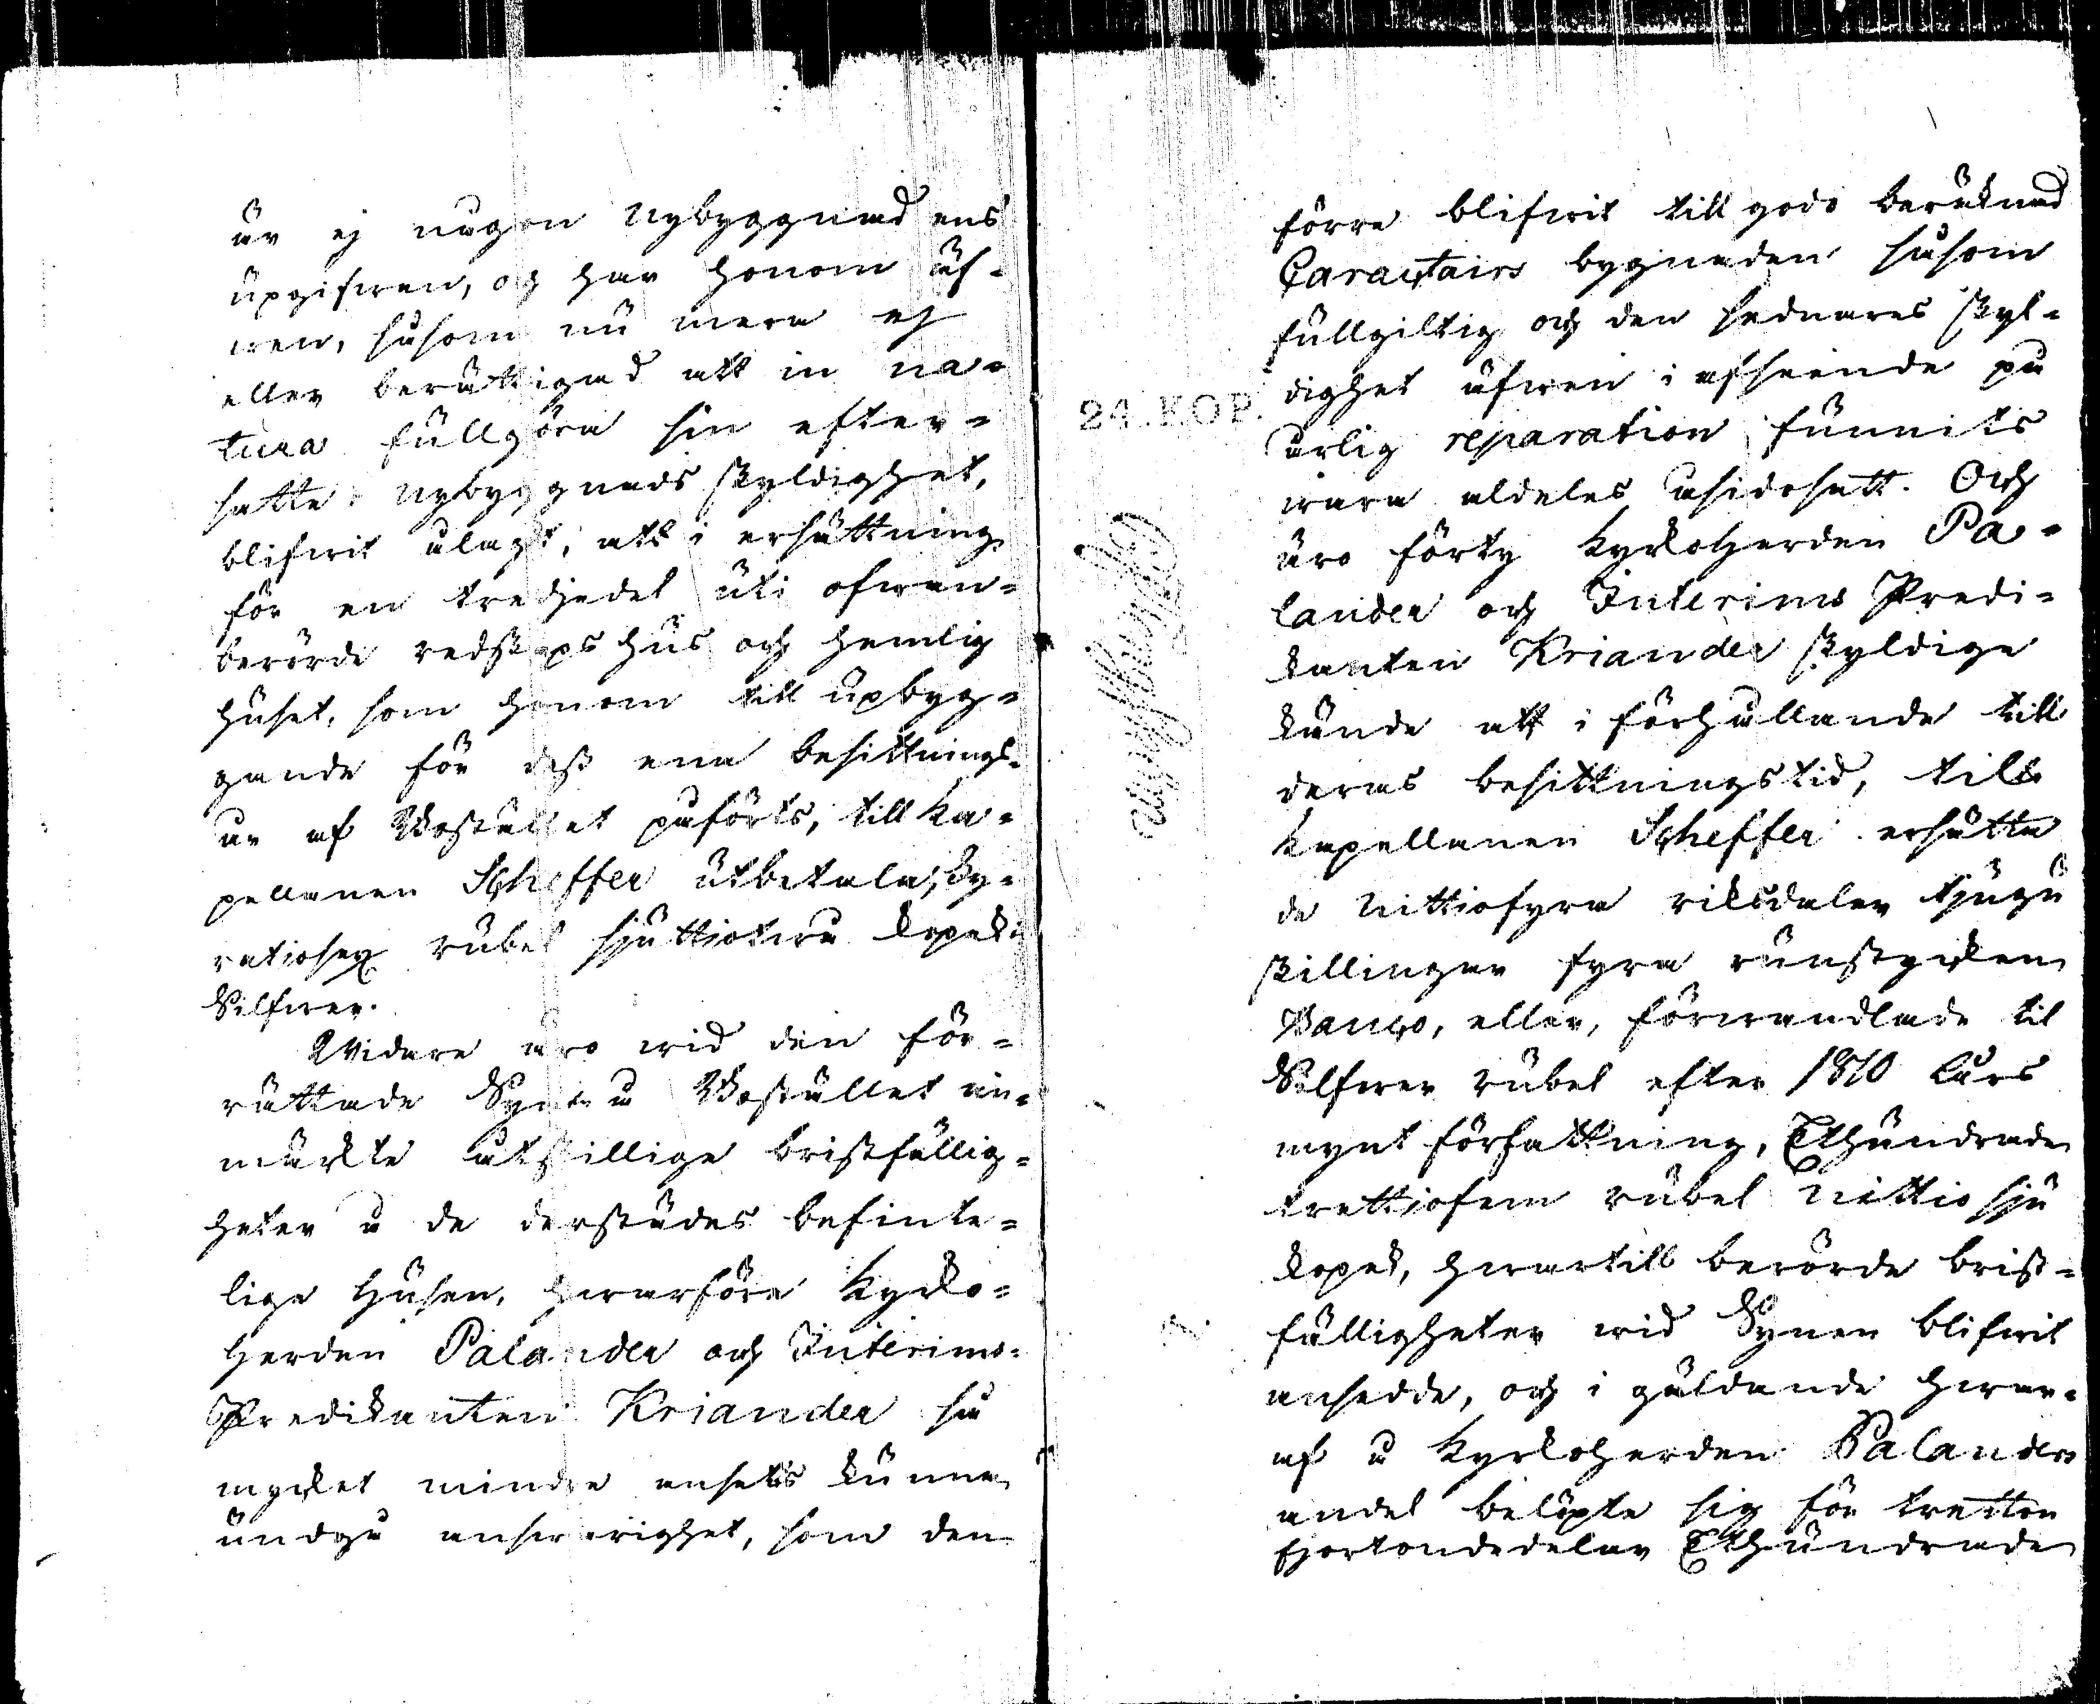 är ej någon Nybyggnad ens
upgifwen, och har honom äf-
wen, såsom nu mera ej
eller berättigad att in na-
tura fullgöra sin efter-
satte nybyggnads skyldighet,
blifwit ålagt, att i ersättning
för en tredjedel uti ofwan-
berörde redskapshus och hemlig
huset, som honom till upbyg-
gande för dess ena besittnings-
år af Bostället påförts, till Ka-
pellanen Scheffer utbetala, Fy-
ratiosex rubel sjuttiotwå kopek
Silfwer.
Widare äro wid den för-
rättade Syn å Bostället an-
märkte åtskillige bristfällig-
heter å de derstädes befinte-
lige Husen, hwarföre Kyrko-
Herden Palander och Interims-
Predikanten Kriander så
mycket mindre ansetts kunna
undgå answarighet, som den
förre blifwit till godo beräknad
Caractairs bygnaden såsom
fullgiltig och den sednares skyl-
dighet äfwen i afseende på
24. KOP.
årlig reparation funnits
wara aldeles åsidosatt. Och
äro förty KyrkoHerden Pa-
lander och Interims Predi-
kanten Kriander skyldige
kände att i förhållande till
deras besittningstid, till
Kapellanen Scheffer ersätta
de Nittiofyra riksdaler tjugu
skillingar fyra runstycken
Banco, eller, förwandlade til
Silfwer rubel efter 1810 års
mynt författning, Etthundrade
trettiofem rubel Nittiosju
kopek, hwartill berörde brist-
fälligheter wid Synen blifwit
ansedde, och i gäldande hwar-
af å Kyrkoherden Palanders
andel belöpte sig för tretton
fjortondedelar Etthundrade